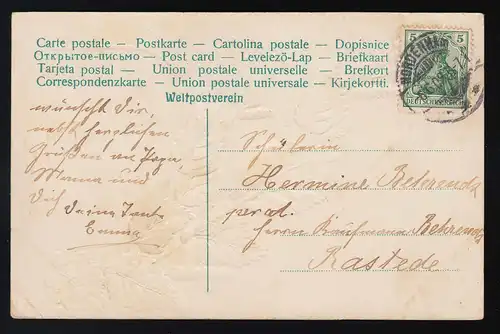 Carte postale – Postkarte – Cartolina postale – Dopisnice
Открытое-письмо – Post card – Levelező-Lap – Briefkaart
Tarjeta postal – Union postale universelle – Brefkort
Correspondenzkarte – Union postale universale – Kirjekortiti.
Weltpostverein
5 5
DEUTSCHES REICH
wünscht Dir,
nebst herzlichen
Grüßen an Papa,
Mama und
Dich Deine Tante
Emma
Schülerin
Hermine Behrends
per. ad.
Herrn Kaufmann Behrends
Rastede